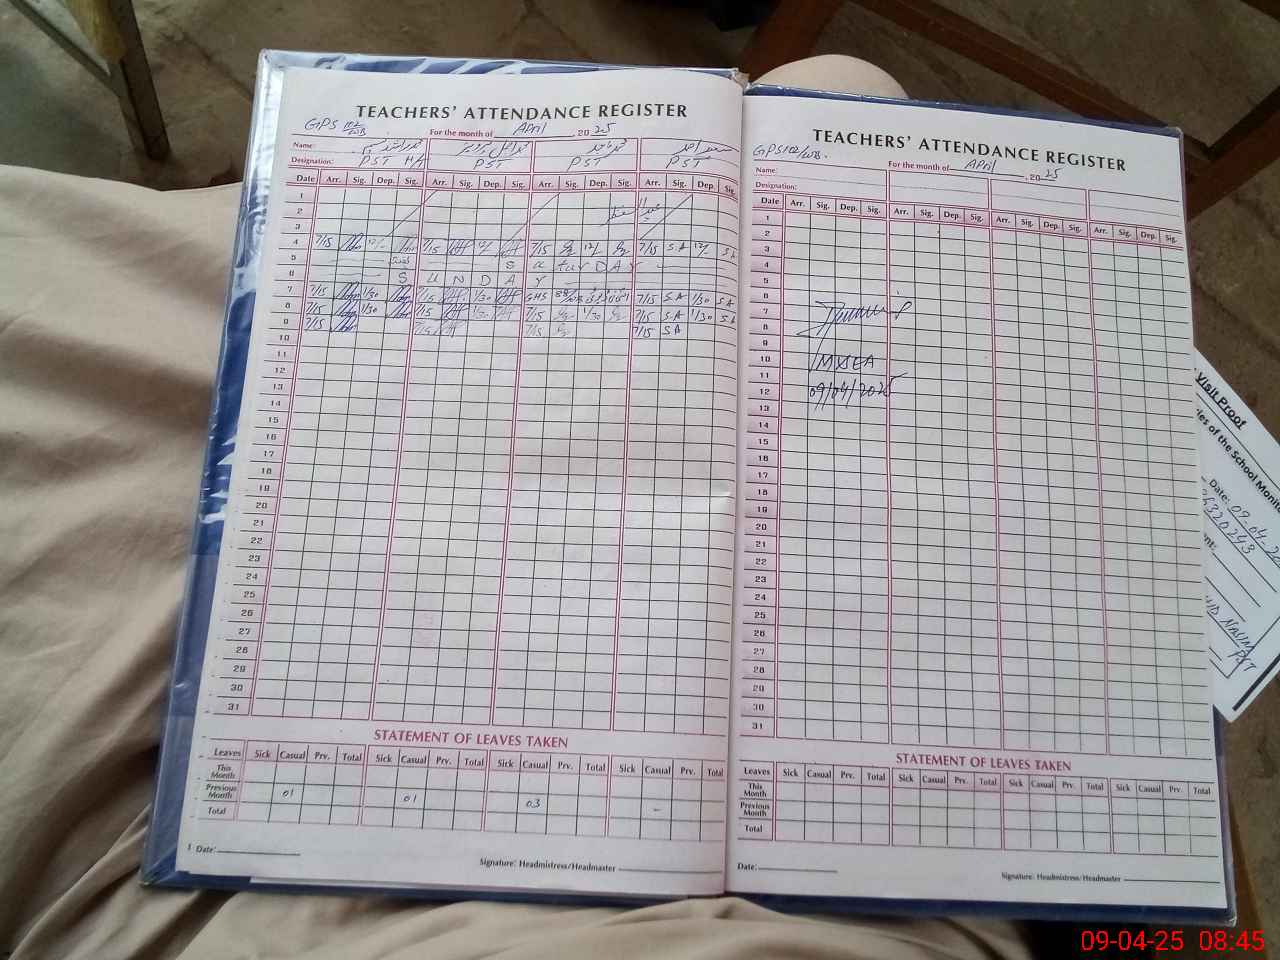 TEACHERS' ATTENDANCE REGISTER
GPS 102/WB
For the month of April 2025
Name:
Designation: PST H/T PST PST PST
Date Arr. Sig. Dep. Sig. Arr. Sig. Dep. Sig. Arr. Sig. Dep. Sig. Arr. Sig. Dep. Sig.
1
2
3
4 7/15 7/15 7/15 7/15 S.A
5 Saturday
6 SUNDAY
7 7/15 1/30 7/15 1/30 GHS 7/15 S.A 1/30 S.A
8 7/15 1/30 7/15 1/30 7/15 1/30 7/15 S.A 1/30 S.A
9 7/15 7/15 7/15 7/15 S.A
10
11
12
13
14
15
16
17
18
19
20
21
22
23
24
25
26
27
28
29
30
31
STATEMENT OF LEAVES TAKEN
Leaves Sick Casual Prv. Total Sick Casual Prv. Total Sick Casual Prv. Total Sick Casual Prv. Total
This Month
Previous Month 01 01 03 -
Total
Date:
Signature: Headmistress/Headmaster
TEACHERS' ATTENDANCE REGISTER
GPS 102/WB.
For the month of April, 2025
Name:
Designation:
Date Arr. Sig. Dep. Sig. Arr. Sig. Dep. Sig. Arr. Sig. Dep. Sig. Arr. Sig. Dep. Sig.
1
2
3
4
5
6
7
8
9
10 MSEA
11
12 09/04/2025
13
14
15
16
17
18
19
20
21
22
23
24
25
26
27
28
29
30
31
STATEMENT OF LEAVES TAKEN
Leaves Sick Casual Prv. Total Sick Casual Prv. Total Sick Casual Prv. Total
This Month
Previous Month
Total
Date:
Signature: Headmistress/Headmaster
Visit Proof
of the School Monito
Date: 09-04-20
PST
09-04-25 08:45